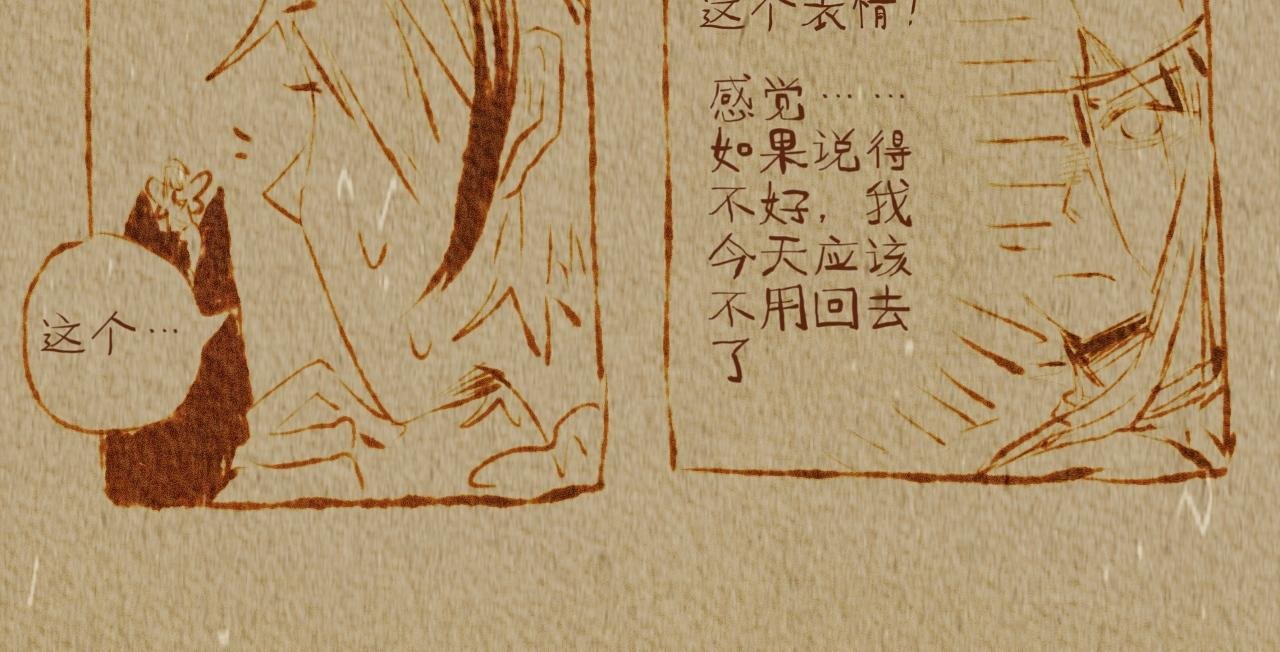 这个…
这个表情！
感觉……
如果说得
不好，我
今天应该
不用回去
了